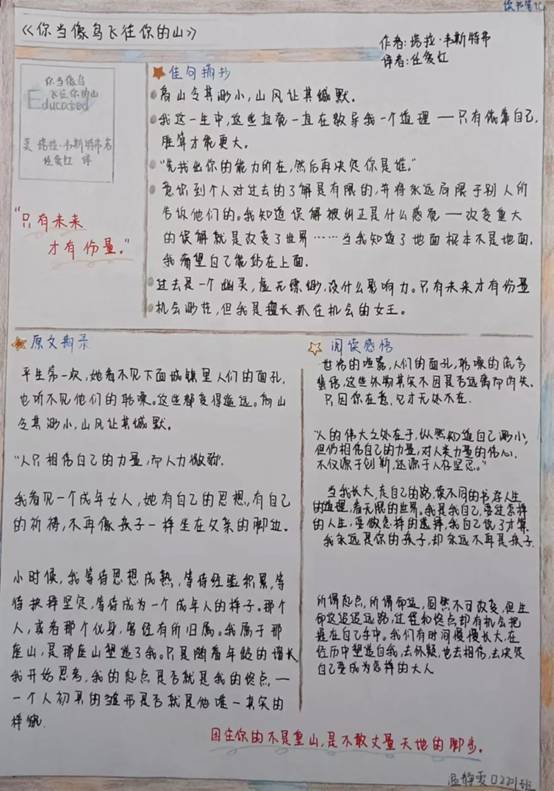 读书笔记
《你当像鸟飞往你的山》
作者:塔拉·韦斯特弗
译者:任爱红
你当像鸟
飞往你的山
Educated
美 塔拉·韦斯特弗 著
任爱红 译
"只有未来
才有份量。"
佳句摘抄
高山令其渺小,山风让其缄默。
我这一生中,这些直觉一直在教导我一个道理——只有依靠自己,
胜算才能更大。
"先找出你的能力所在,然后再决定你是谁。"
意识到个人对过去的了解是有限的,并将永远局限于别人所
告诉他们的。我知道误解被纠正是什么感觉——改变重大
的误解就是改变了世界……当我知道了地面根本不是地面,
我希望自己能站在上面.
过去是一个幽灵,虚无缥缈,没什么影响力。只有未来才有份量
机会渺茫,但我是擅长抓住机会的女王。
原文摘录
平生第一次,她看不见下面城镇里人们的面孔,
也听不见他们的聒噪。这些都变得遥远。高山
令其渺小,山风让其缄默。
"人只相信自己的力量,即人力微薄.
我看见一个成年女人,她有自己的思想,有自己
的祈祷,不再像孩子一样坐在父亲的脚边。
小时候,我等待思想成熟,等待经验积累,等
待抉择坚定,等待成为一个成年人的样子。那个
人,或者那个化身,曾经有所归属。我属于那
座山,是那座山塑造了我。只是随着年龄的增长
我开始思考,我的起点是否就是我的终点,—
一个人初具的雏形是否就是他唯一真实的
样貌.
阅读感悟
世俗的喧嚣,人们的面孔,聒噪的流言
只因你在意,它才无处不在.
"人的伟大之处在于,纵然知道自己渺小,
但仍相信自己的力量,对人类力量的信心,
不仅源于创新,还源于人存坚忍。"
当我长大,走自己的路,读不同的书在人生
的道理,看无限的世界。我是我自己,要过怎样
的人生,要做怎样的选择,我自己说了才算.
我永远是你的孩子,却永远不再是孩子.
所谓起点,所谓命运,固然不可改变,但生
命这迢迢远路,过程和终点却有机会把
握在自己手中。我们有时间慢慢长大,在
经历中塑造自我,去怀疑,也去相信,去决定
自己变成为怎样的大人
困住你的不是重山,是不敢丈量天地的脚步。